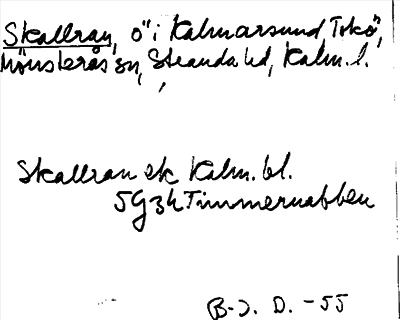 Skallran, ö i Kalmarsund, Tokö,
Mönsterås sn, Stranda hd, Kalm. l.
Skallran ek Kalm. bl.
5G3h Timmernabben
B-J. D. -55